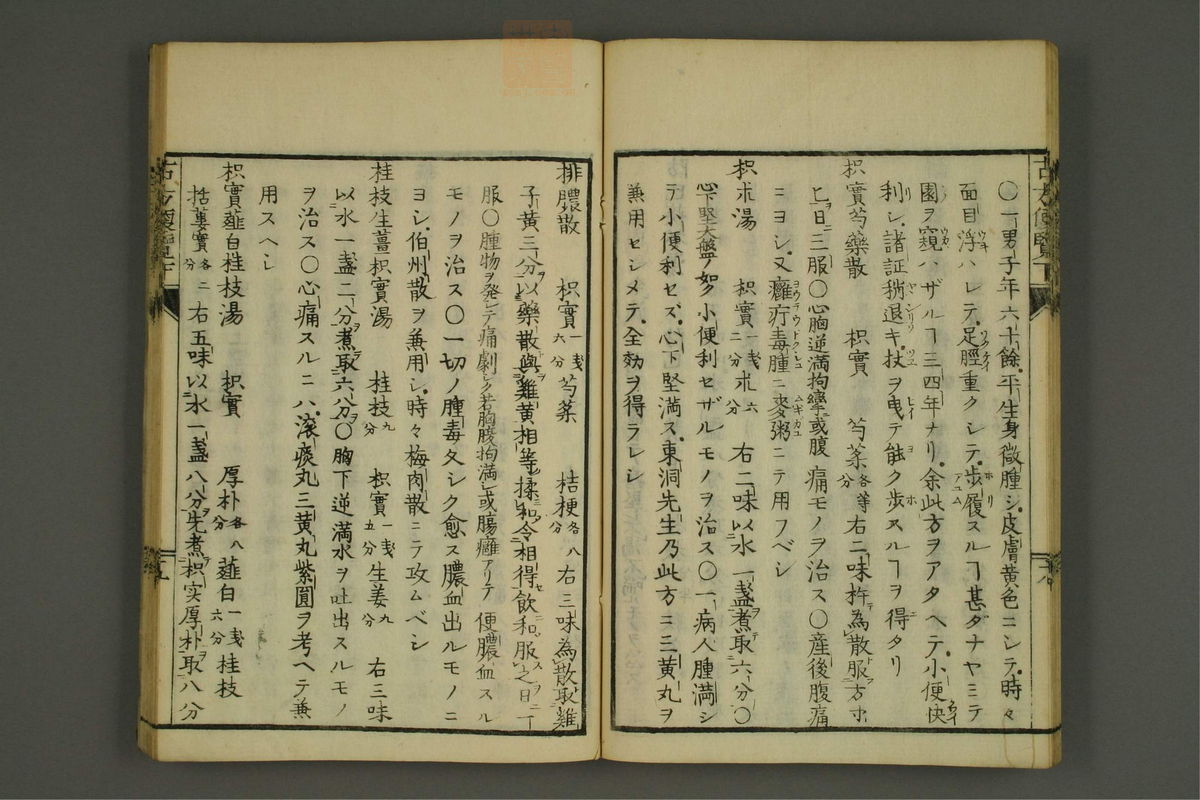 〇一男子年六十餘平生身微腫シ皮膚黄色ニシテ時々
面目浮ハレテ足脛重クシテ歩履スルヿ甚ダナヤミテ
園ヲ窺ハザルヿ三四年ナリ余此方ヲアタヘテ小便快
利シ諸証稍退キ杖ヲ曳テ能ク歩スルヿヲ得タリ
枳實芍藥散 枳實 芍薬各等分 右二味杵為散服方寸
匕日三服〇心胸逆満拘攣或腹痛モノヲ治ス〇産後腹痛
ニヨシ又癰疔毒腫ニ麥粥ニテ用フベシ
枳朮湯 枳實一戔二分 朮六分 右二味以水一盞煮取六分〇
心下堅大盤ノ如ク小便利セザルモノヲ治ス〇一病人腫満シ
テ小便利セズ心下堅満ス東洞先生乃此方ニ三黄丸ヲ
兼用セシメテ全効ヲ得ラレシ
排膿散 枳實一戔六分 芍薬 桔梗各八分 右三味為散取雞
子黄三分以藥散與雞黄相等揉和令相得飲和服之日一
服〇腫物ヲ発シテ痛劇シク若胸腹拘満シ或腸癰アリテ便膿血スル
モノヲ治ス〇一切ノ腫毒久シク愈ス膿血出ルモノニ
ヨシ伯州散ヲ兼用シ時々梅肉散ニテ攻ムベシ
桂枝生薑枳實湯 桂枝九分 枳實一戔五分 生姜九分 右三味
以水一盞二分煮取六分〇胸下逆満水ヲ吐出スルモノ
ヲ治ス〇心痛スルニハ滚痰丸三黄丸紫圓ヲ考ヘテ兼
用スヘシ
枳實薤白桂枝湯 枳實 厚朴各八分 薤白一戔六分 桂枝
括蔞實各二分 右五味以水一盞八分先煮枳实厚朴取八分